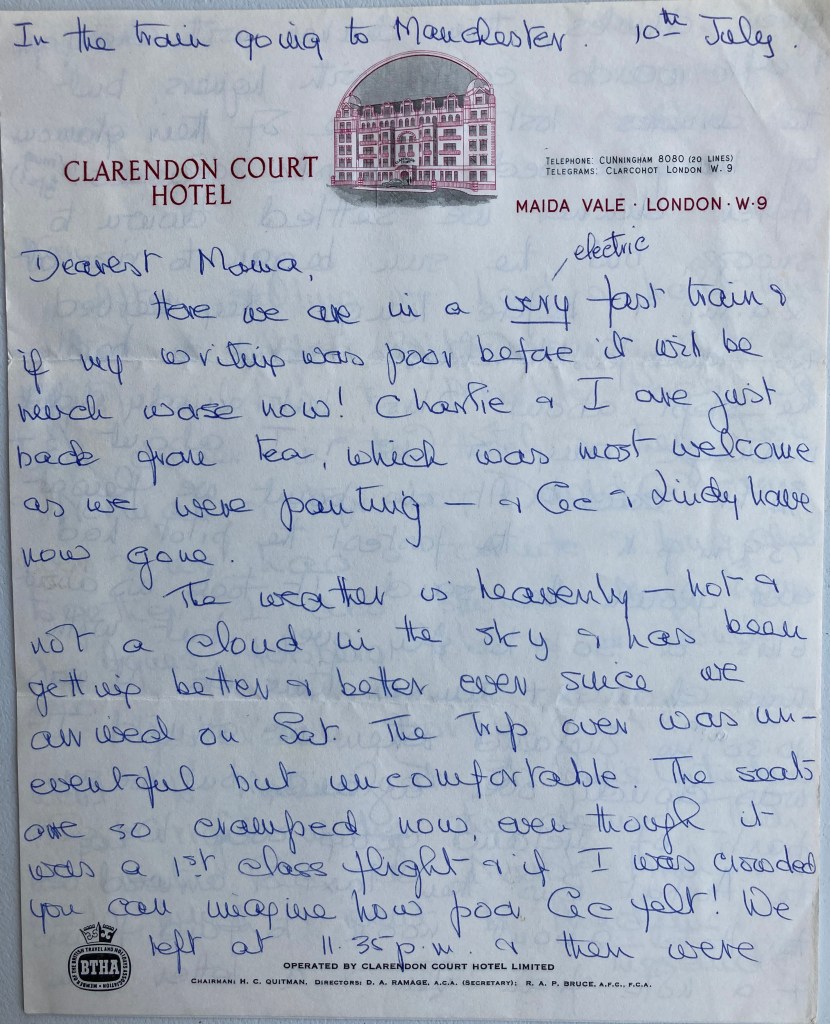 In the train going to Manchester. 10th July.
CLARENDON COURT
HOTEL
TELEPHONE: CUNNINGHAM 8080 (20 LINES)
TELEGRAMS: CLARCOHOT LONDON W. 9
MAIDA VALE · LONDON · W·9
Dearest Mama,
electric
Here we are in a very fast train &
if my writing was poor before it will be
much worse now! Charlie & I are just
back from tea, which was most welcome
as we were panting — & Cec & Lindy have
now gone.
The weather is heavenly — hot &
not a cloud in the sky & has been
getting better & better ever since we
arrived on Sat. The trip over was un-
eventful but uncomfortable. The seats
are so cramped now, even though it
was a 1st class flight & if I was crowded
you can imagine how poor Cec felt! We
left at 11.35 p.m. & then were
BTHA
OPERATED BY CLARENDON COURT HOTEL LIMITED
CHAIRMAN: H. C. QUITMAN, DIRECTORS: D. A. RAMAGE, A.C.A. (SECRETARY); R. A. P. BRUCE, A.F.C., F.C.A.